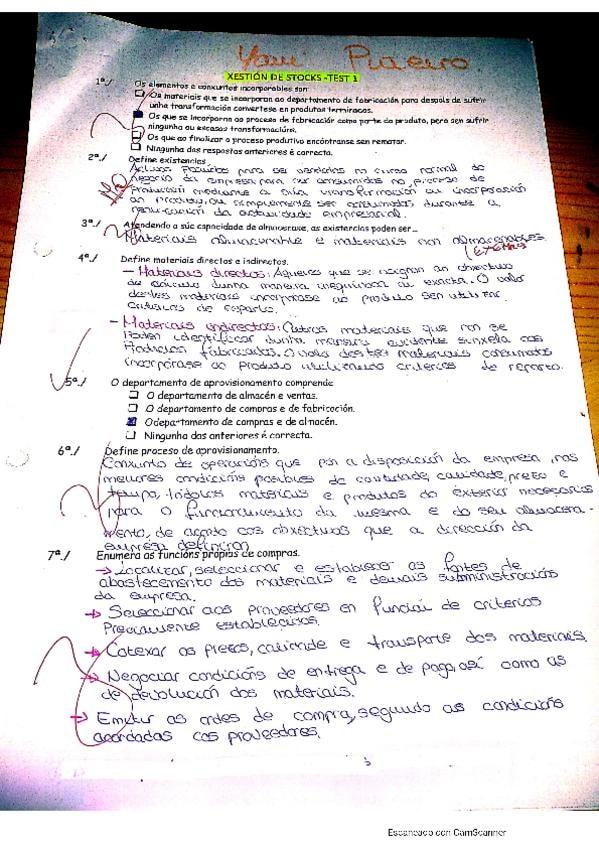 XESTIÓN DE STOCKS -TEST 1
1º./ Os elementos e conxuntos incorporables son:
Os materiais que se incorporan ao departamento de fabricación para despois de sufrir
unha transformación convertese en produtos terminados.
Os que se incorporan ao proceso de fabricación como parte do produto, pero sen sufrir
ningunha ou escasas transformacións.
Os que ao finalizar o proceso produtivo encóntranse sen rematar.
Ningunha das respostas anteriores é correcta.
2º./ Define existencias
Activos para ser vendidos no curso normal do
negocio da empresa para ser consumidos no proceso de
produción mediante a súa transformación ou incorporación
ao produto, ou simplemente ser consumidos durante a
da actividade empresarial.
3º./ Atendendo a súa capacidade de almacenaxe, as existencias poden ser...
Materiais almacenable e materiais non almacenables.
4º./ Define materiais directos e indirectos.
- Materiais directos: Aqueles que se asignan ao obxectivo
de cálculo dunha maneira inequívoca ou exacta. O valor
destes materiais incorporase ao produto sen utilizar
criterios de reparto.
- Materiais indirectos: Outros materiais que non se
poden identificar dunha maneira evidente cos
fabricados. O valor destes materiais consumidos
incorpórase ao produto utilizando criterios de reparto.
5º./ O departamento de aprovisionamento comprende
O departamento de almacén e ventas.
O departamento de compras e de fabricación.
Odepartamento de compras e de almacén.
Ningunha das anteriores é correcta.
6º./ Define proceso de aprovisionamento.
Conxunto de operacións que pon a disposición da empresa, nas
mellores condicións posibles de cantidade, calidade, prezo e
tempo, todolos materiais e produtos do exterior necesarios
para o funcionamento da mesma e do seu almacena-
mento, de acordo cos obxectivos que a dirección da
empresa definiron
7º./ Enumera as funcións propias de compras.
→ Localizar, seleccionar e establecer as fontes de
abastecemento dos materiais e demais subministracións
da empresa.
→ Seleccionar aos proveedores en función de criterios
Previamente establecidos.
→ Cotexar os prezos, calidade e transporte dos materiais.
→ Negociar condicións de entrega e de pago, así como as
de devolución dos materiais.
→ Emitir as ordes de compra, segundo as condicións
acordadas cos proveedores.
Escaneado con CamScanner